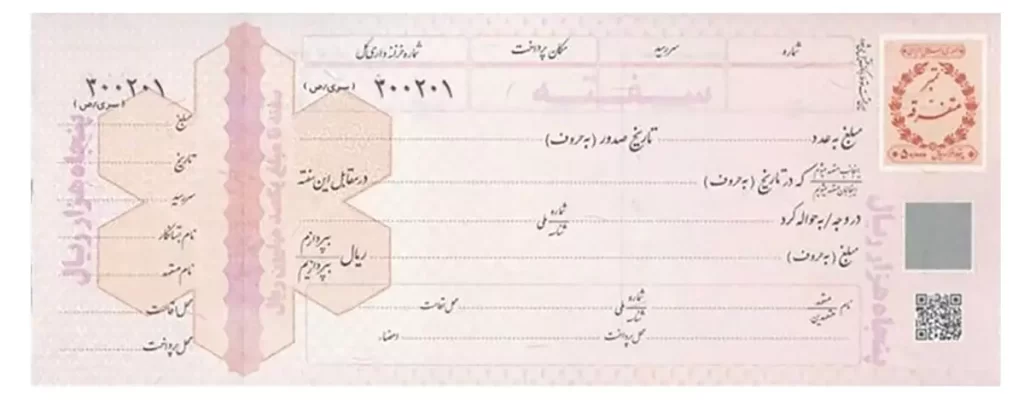 شماره سررسید مکان پرداخت شماره خزانه داری کل
سفته
۳۰۰۲۰۱ (سری/ص)
جمهوری اسلامی ایران
تمبر
متفرقه
پنجاه هزار ریال ۵۰۰۰۰
مبلغ به عدد تاریخ صدور (به حروف)
اینجانب متعهد میشوم
اینجانبان متعهد میشویم
که در تاریخ (به حروف) در مقابل این سفته
در وجه/به حواله کرد شماره/شناسه ملی
مبلغ (به حروف) ریال بپردازم/بپردازیم
نام متعهد/متعهدین شماره/شناسه ملی محل اقامت
محل پرداخت امضاء
پنجاه هزار ریال
سفته تا مبلغ پانصد میلیون ریال
۳۰۰۲۰۱
(سری/ص)
مبلغ
تاریخ
سررسید
نام بستانکار
نام متعهد
محل اقامت
محل پرداخت
پنجاه هزار ریال